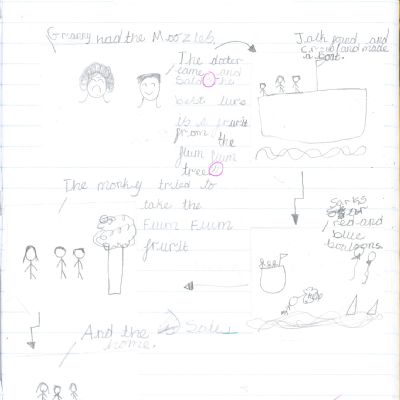 Granny had the Moozles
The docter
came and
Said the
best cure
is a fruit
from
the
flum flum
tree
Jalk found and
crowd and made
a boat.
Sarks
red and
blue
balloons.
The monkey tried to
take the
Flum Flum
fruit
And the Sail
home.